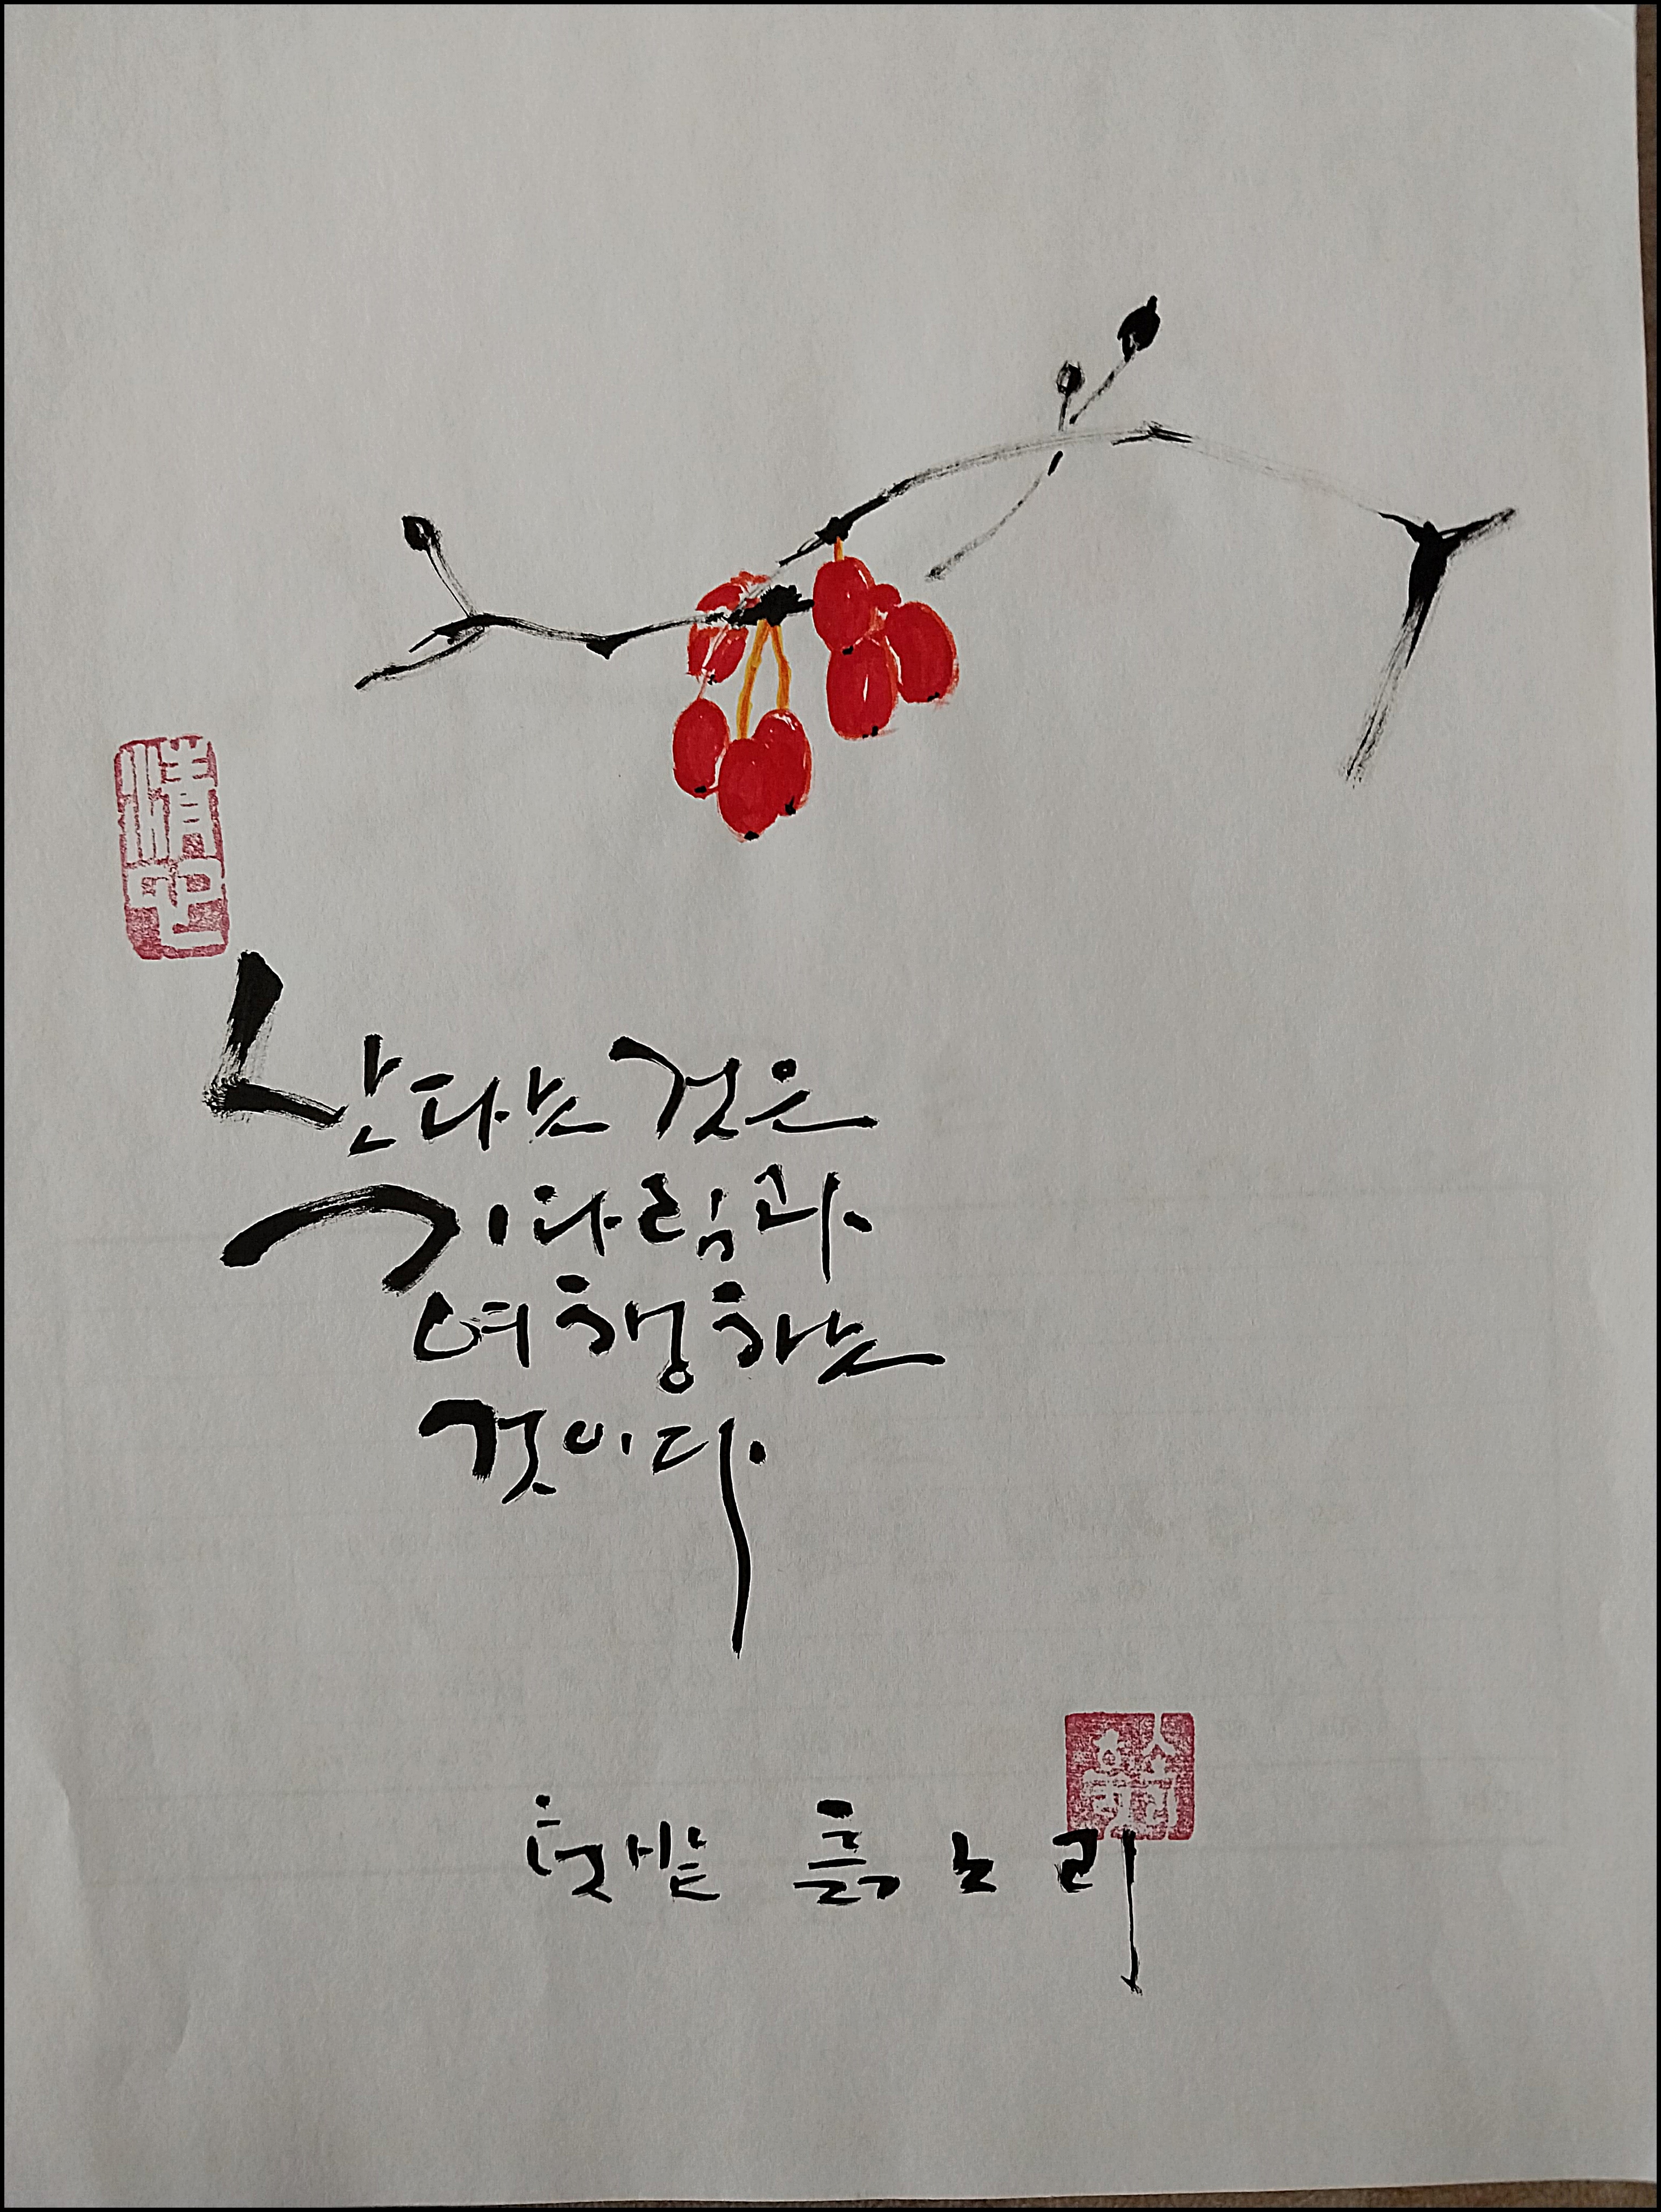 산다는 것은
기다림과
여행하는
것이다.
흙 노 리